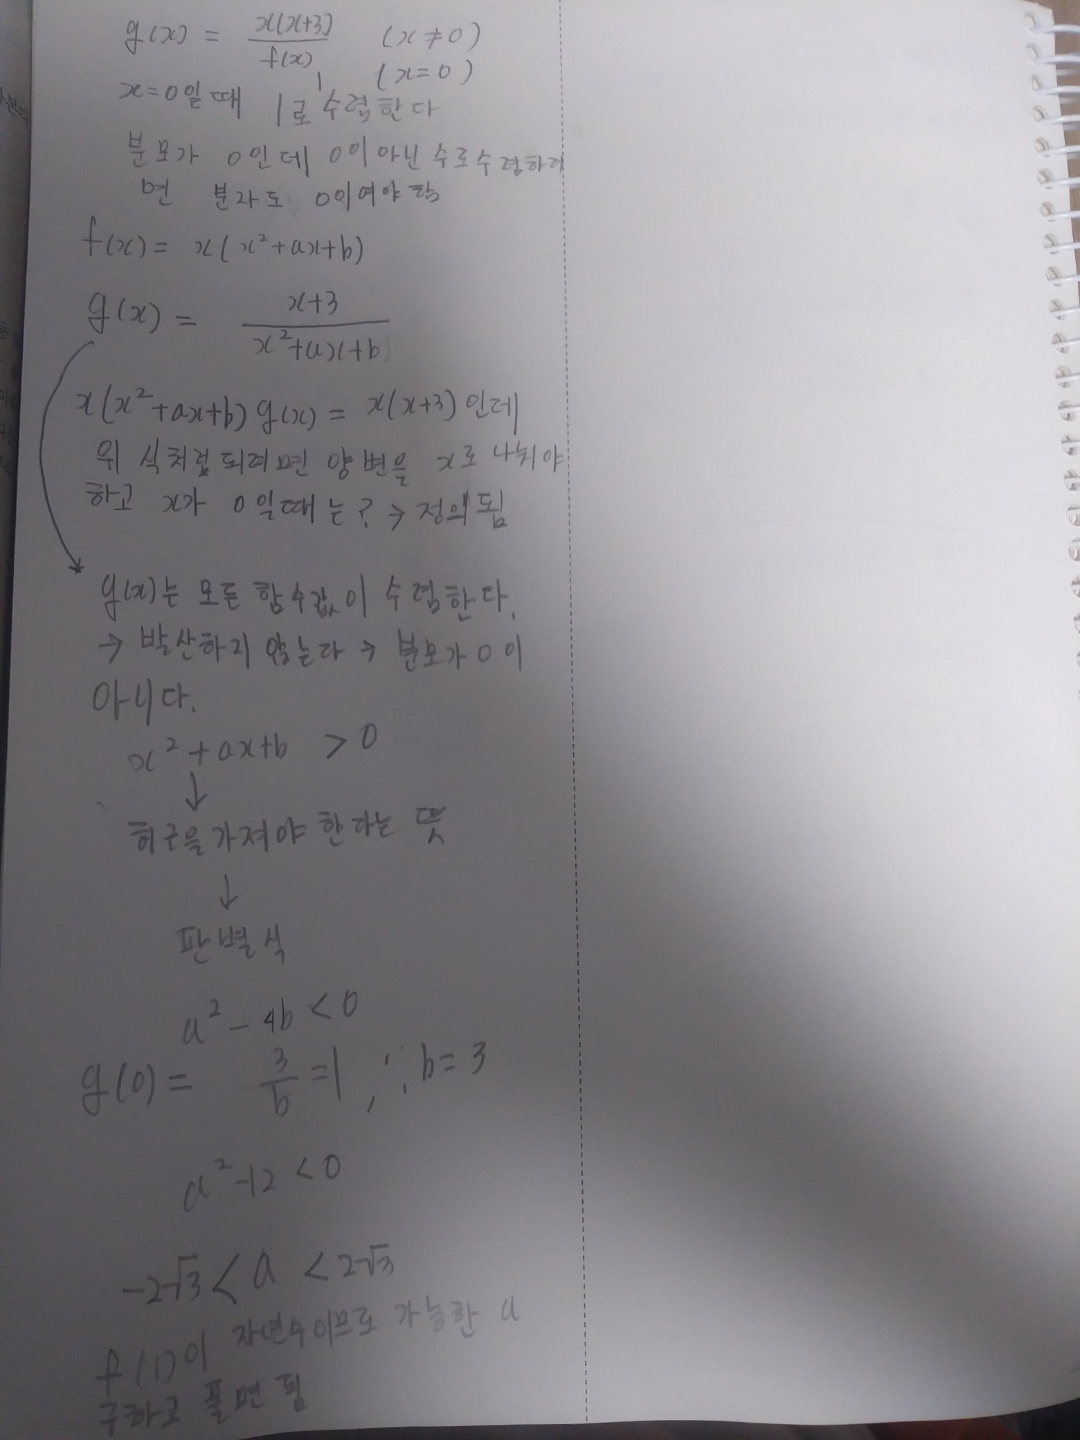 g(x) = x(x+3)/f(x) (x≠0)
1 (x=0)
x=0일때 1로 수렴한다
분모가 0인데 0이 아닌 수로 수렴하려
면 분자도 0이여야 함
f(x) = x(x²+ax+b)
g(x) = x+3/x²+ax+b
x(x²+ax+b) g(x) = x(x+3) 인데
위 식처럼 되려면 양변을 x로 나눠야
하고 x가 0일때는? → 정의됨
g(x)는 모든 함수값이 수렴한다.
→ 발산하지 않는다 → 분모가 0이
아니다.
x²+ax+b > 0
↓
허근을 가져야 한다는 뜻
↓
판별식
a²-4b<0
g(0) = 3/b =1, ∴ b=3
a²-12<0
-2√3 < a < 2√3
f(1)이 자연수이므로 가능한 a
구하고 풀면 됨